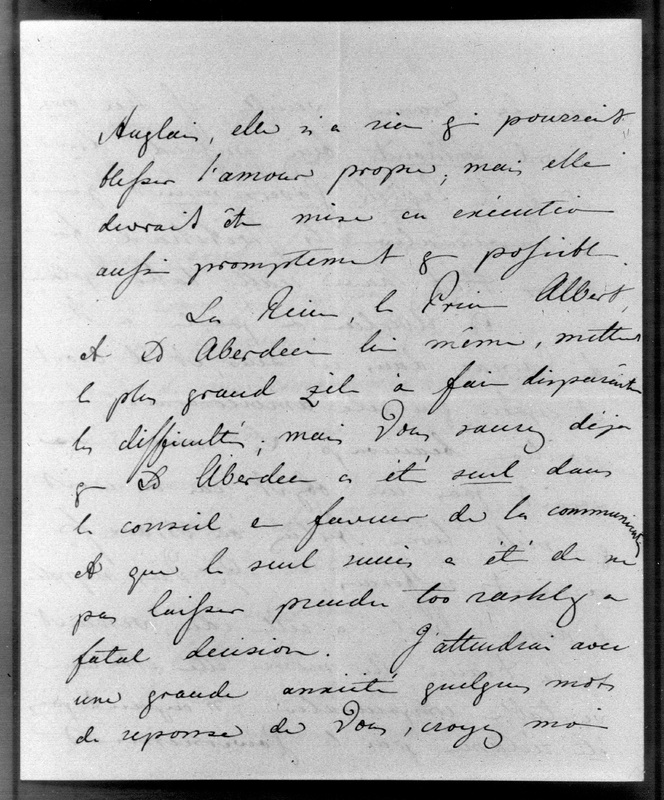 Anglais, elle n'a rien qi pourrait
blesser l'amour propre, mais elle
devrait être mise en exécution
aussi promptement q possible.
La Reine le Prince Albert,
et Ld Aberdeen lui même, mettent
le plus grand zèle à faire disparaître
les difficultés; mais Vous saurez déja
q Ld Aberdeen a été seul dans
le conseil en faveur de la communication
et que le seul succès a été de ne
pas laisser prendre too rashly a
fatal decision. J'attendrai avec
une grande anxiété quelques mots
de reponse de Vous, croyez moi